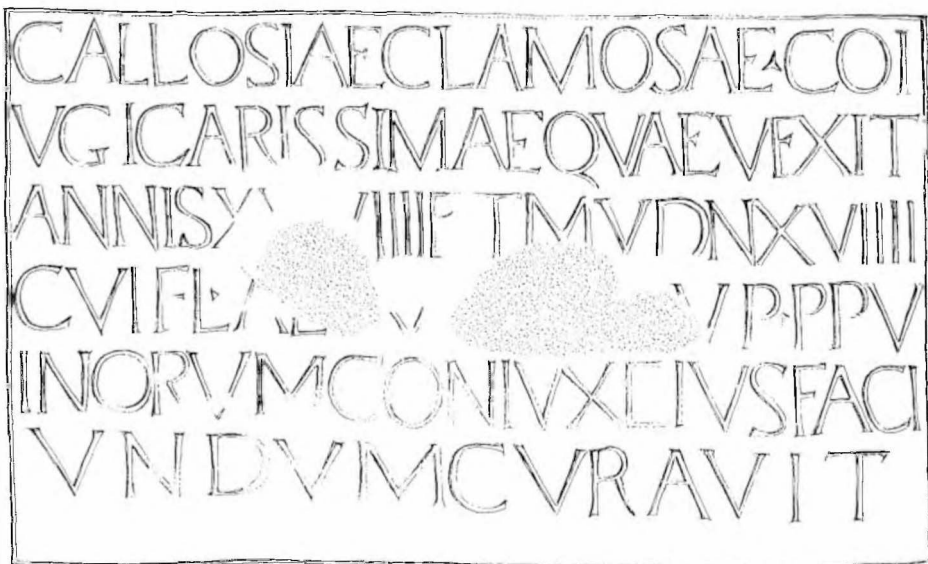 CALLOSIAECLAMOSAE·COI
VGICARISSIMAEQVAEVEXIT
ANNIS VIIIIETMVDNXVIIII
CVIFL· VP·PPV
INORVMCONIVXEIVSFACI
VNDVMCVRAVIT